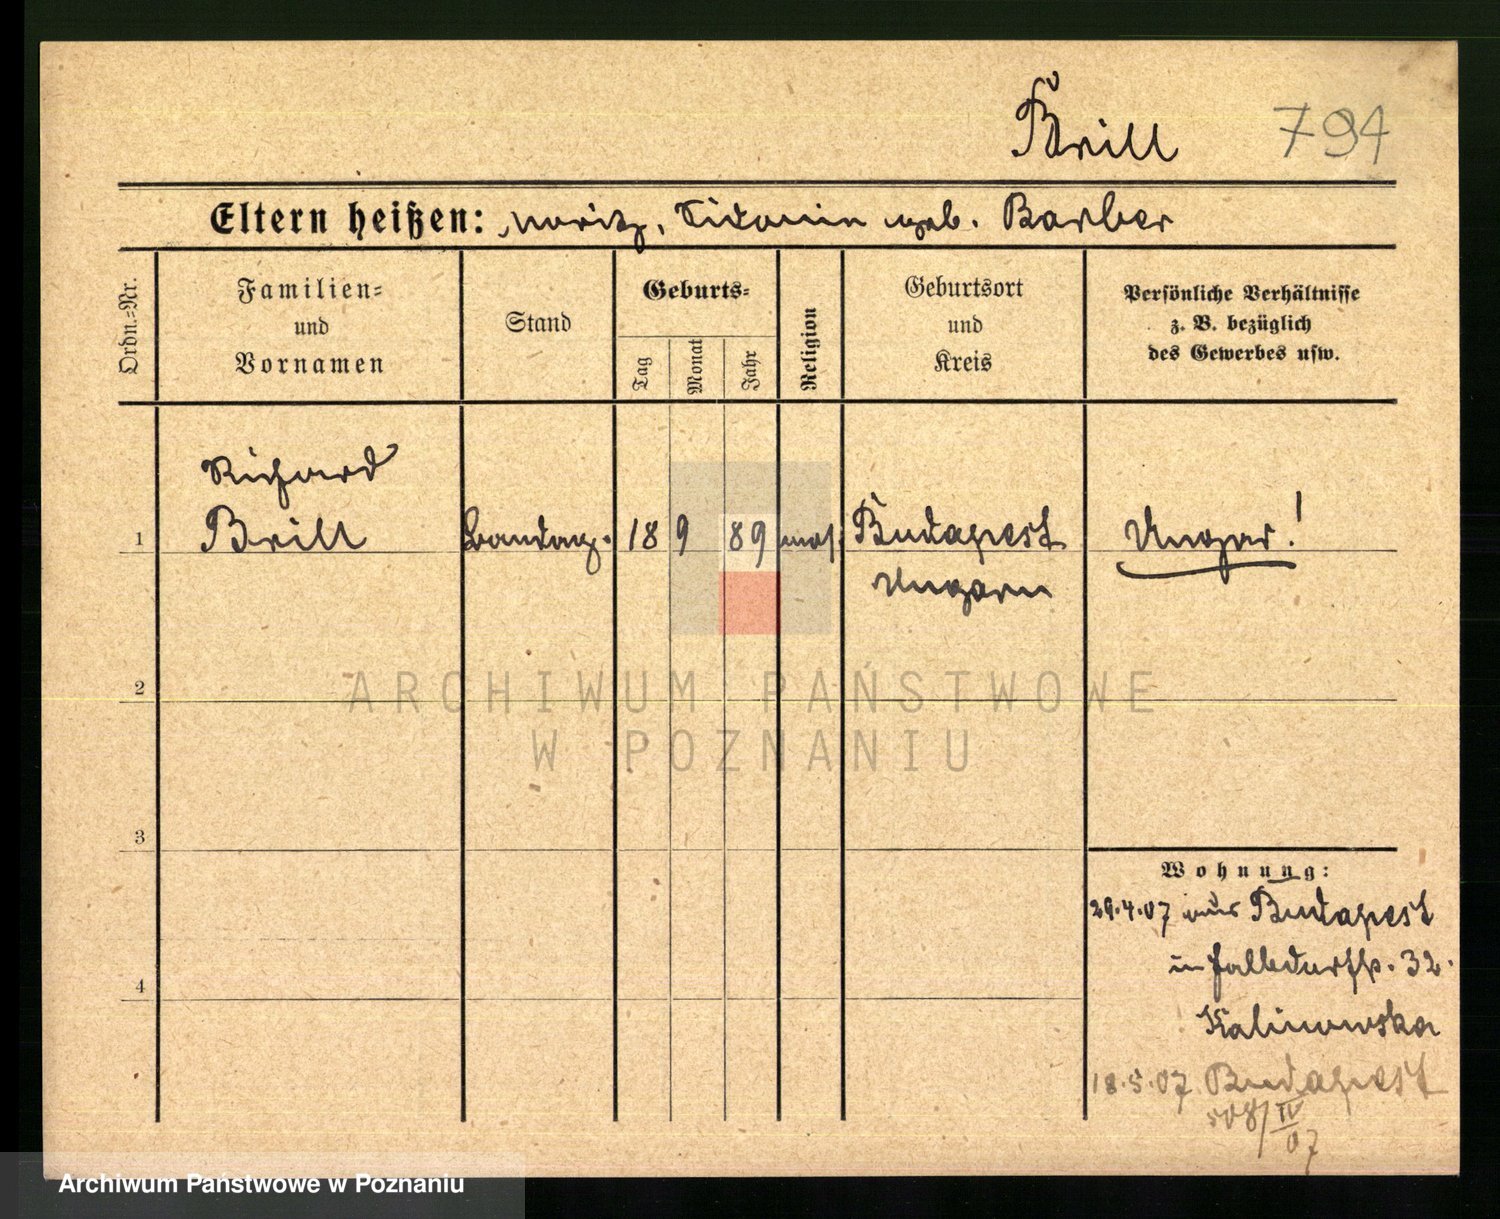 Brill 794
Eltern heißen: Moritz, Sidonie geb. Barber
Ordn.=Nr.
Familien=
und
Vornamen
Stand
Geburts=
Tag
Monat
Jahr
Religion
Geburtsort
und
Kreis
Persönliche Verhältnisse
z. B. bezüglich
des Gewerbes usw.
Richard
1 Brill 18 9 89 mos. Budapest Ungar!
Ungarn
ARCHIWUM PAŃSTWOWE
W POZNANIU
2
3
Wohnung:
29.4.07 aus Budapest
in 32.
Kalinowska
4
18.5.07 Budapest
508/IV
07
Archiwum Państwowe w Poznaniu